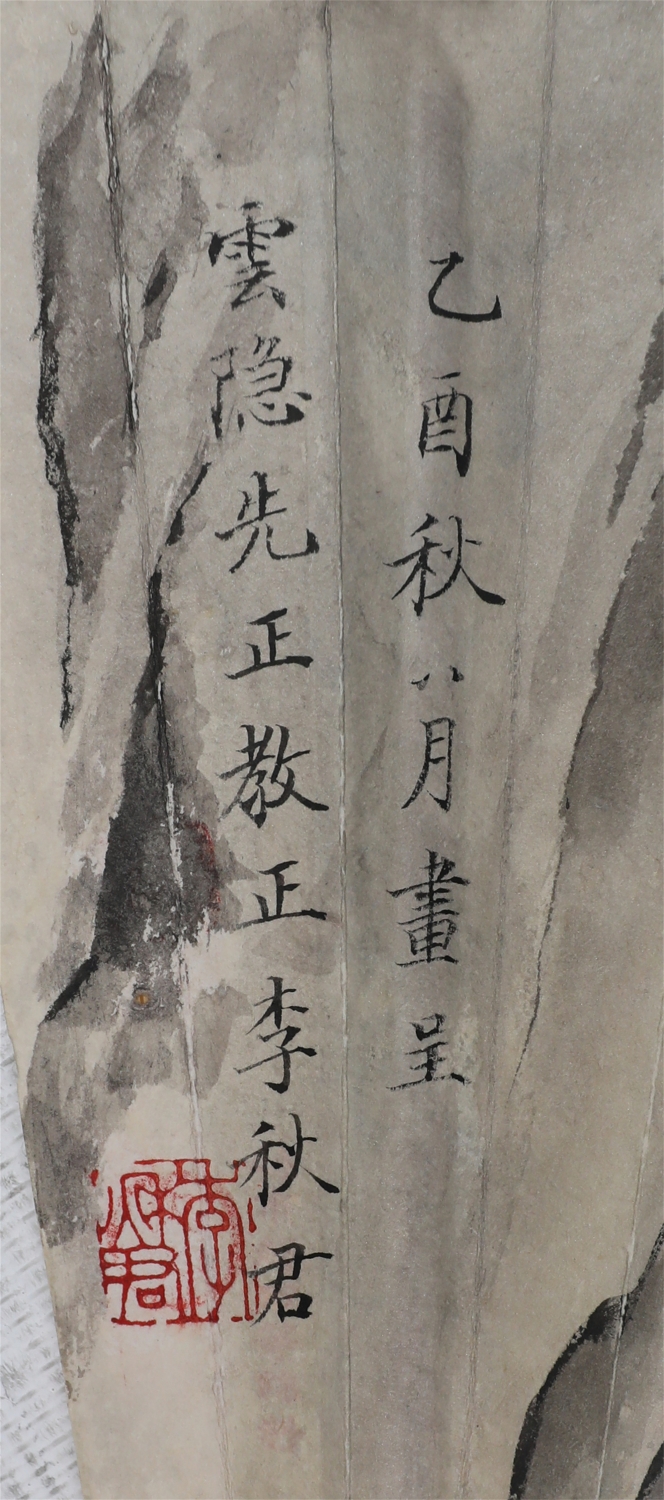 乙酉秋八月畫呈
雲隐先正教正李秋君
李秋君